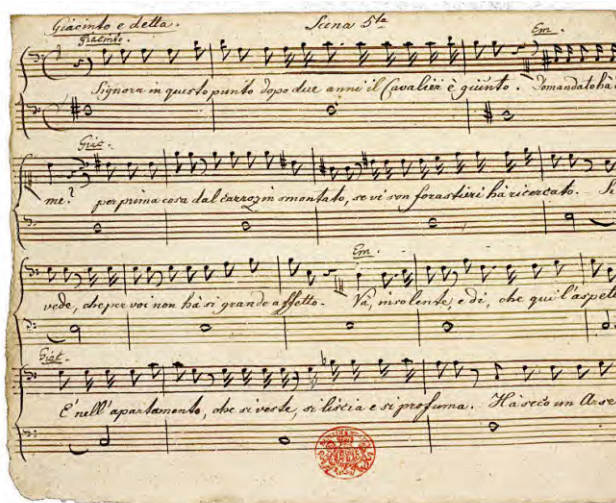 Giacinto e detta. Scena 5ta
Giacinto. Em.
Signora in questo punto dopo due anni il Cavalier è giunto. Domandato hà
Giac.
me? per prima cosa dal carrozzin smontato, se vi son forastieri hà ricercato. Si
Em.
vede, che per voi non hà si grande affetto. Và, insolente, e di, che qui l'aspett
Giac.
E' nell'apartamento, che si veste, si liscia e si profuma. Hà seco un